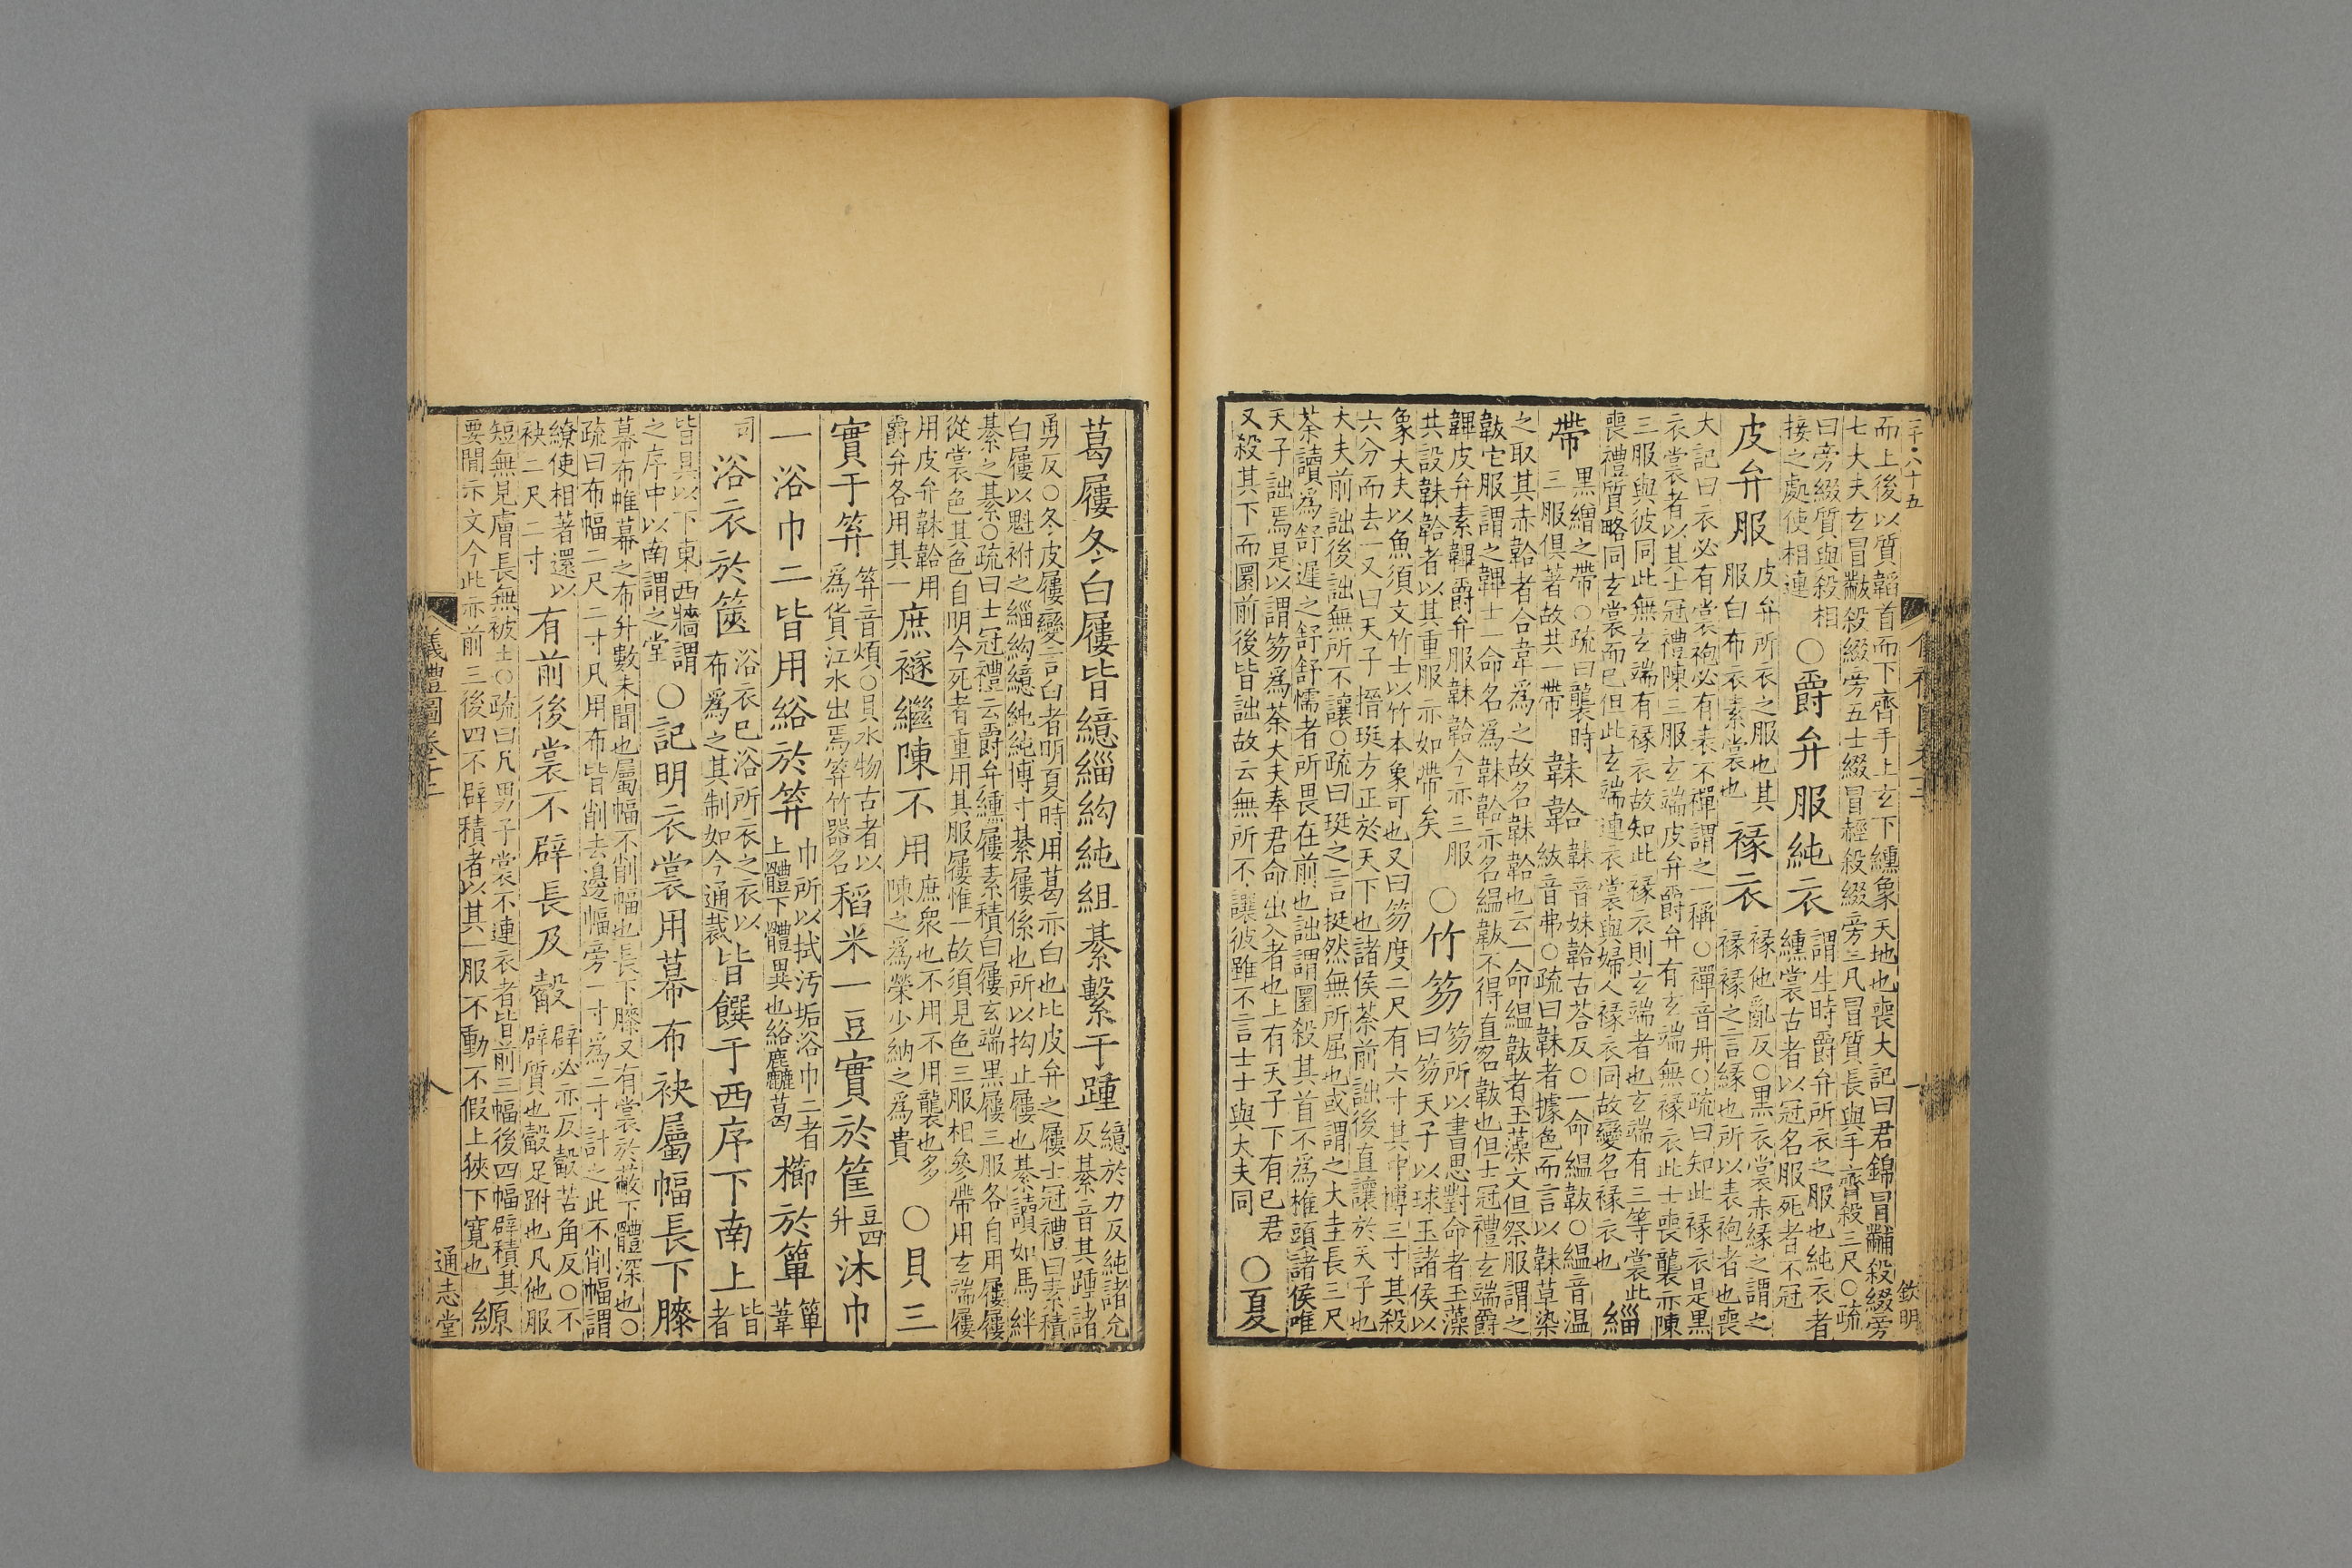 二千八十五
而上後以質韜首而下齊手上玄下纁象天地也喪大記曰君錦冒黼殺綴旁
七大夫玄冒黻殺綴旁五士緇冒赬殺綴旁三凡冒質長與手齊殺三尺○疏
曰旁綴質與殺相
接之處使相連
○爵弁服純衣
謂生時爵弁所衣之服也純衣者
纁裳古者以冠名服死者不冠
皮弁服
皮弁所衣之服也其
服白布衣素裳也
褖衣
褖他亂反○黑衣裳赤緣之謂之
褖褖之言緣也所以表袍者也喪
大記曰衣必有裳袍必有表不襌謂之一稱○襌音丹○疏曰知此褖衣是黑
衣裳者以其士冠禮陳三服玄端皮弁爵弁有玄端無褖衣此士喪襲亦陳
三服與彼同此無玄端有褖衣故知此褖衣則玄端者也玄端有三等裳此
喪禮質略同玄裳而已但此玄端連衣裳與婦人褖衣同故變名褖衣也
緇
帶
黑繒之帶○疏曰襲時
三服俱著故共一帶
韎韐
韎音妹韐古荅反○一命緼韍○緼音温
紱音弗○疏曰韎者據色而言以韎草染
之取其赤韐者合韋為之故名韎韐也云一命緼韍者玉藻文但祭服謂之
韍它服謂之韠士一命名為韎韐亦名緼韍不得直名韍也但士冠禮玄端爵
韠皮弁素韠爵弁服韎韐今亦三服
共設韎韐者以其重服亦如帶矣
○竹笏
笏所以書思對命者玉藻
曰笏天子以球玉諸侯以
象大夫以魚須文竹士以竹本象可也又曰笏度二尺有六寸其中博三寸其殺
六分而去一又曰天子搢珽方正於天下也諸侯荼前詘後直讓於天子也
大夫前詘後詘無所不讓○疏曰珽之言挺然無所屈也或謂之大圭長三尺
荼讀為舒遲之舒舒懦者所畏在前也詘謂圜殺其首不為椎頭諸侯唯
天子詘焉是以謂笏為荼大夫奉君命出入者也上有天子下有已君
又殺其下而圜前後皆詘故云無所不讓彼雖不言士士與大夫同
○夏
欽明
葛屨冬白屨皆繶緇絇純組綦繫于踵
繶於力反純諸允
反綦音其踵諸
勇反○冬皮屨變言白者明夏時用葛亦白也比皮弁之屨士冠禮曰素積
白屨以魁柎之緇絇繶純純博寸綦屨係也所以拘止屨也綦讀如馬絆
綦之綦○疏曰士冠禮云爵弁纁屨素積白屨玄端黑屨三服各自用屨屨
從裳色其色自明今死者重用其服屨惟一故須見色三服相參帶用玄端屨
用皮弁韎韐用
爵弁各用其一
庶襚繼陳不用
庶衆也不用不用襲也多
陳之為榮少納之為貴
○貝三
實于笲
笲音煩○貝水物古者以
為貨江水出焉笲竹器名
稻米一豆實於筐
豆四
升
沐巾
一浴巾二皆用綌於笲
巾所以拭汚垢浴巾二者
上體下體異也綌麤葛
櫛於簞
簞
葦
司
浴衣於篋
浴衣已浴所衣之衣以
布為之其制如今通裁
皆饌于西序下南上
皆
者
皆具以下東西牆謂
之序中以南謂之堂
○記明衣裳用幕布袂屬幅長下膝
幕布帷幕之布升數未聞也屬幅不削幅也長下膝又有裳於蔽下體深也○
疏曰布幅二尺二寸凡用布皆削去邊幅旁一寸為二寸計之此不削幅謂
繚使相著還以
袂二尺二寸
有前後裳不辟長及觳
辟必亦反觳苦角反○不
辟質也觳足跗也凡他服
短無見膚長無被土○疏曰凡男子裳不連衣者皆前三幅後四幅辟積其
要閒示文今此亦前三後四不辟積者以其一服不動不假上狹下寬也
縓
儀禮圖卷十二
八
通志堂